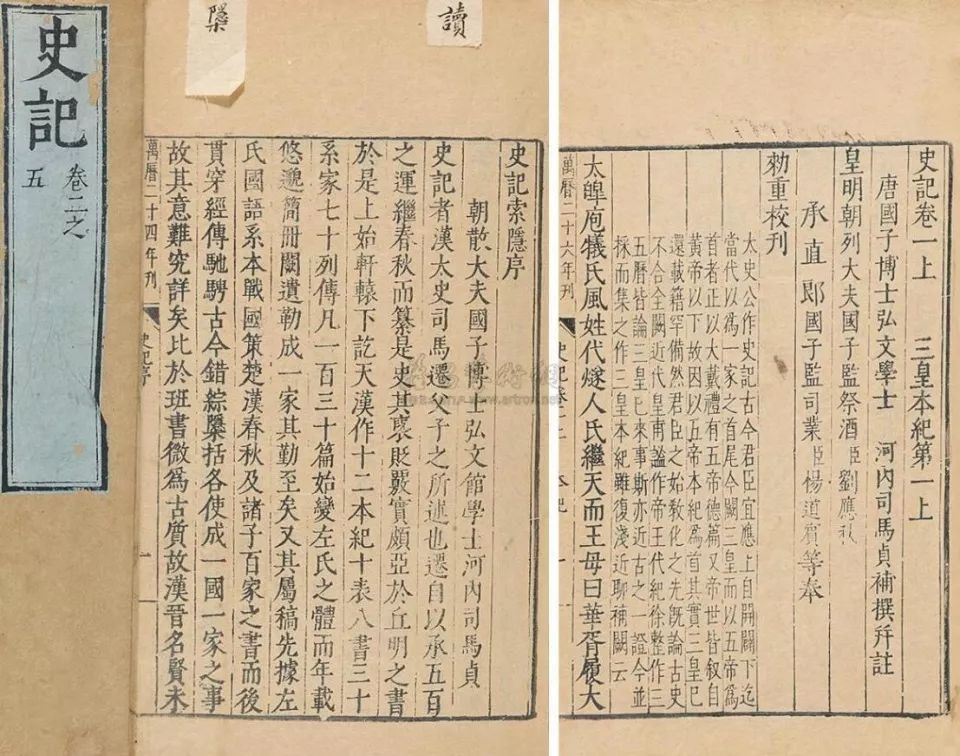 史記
卷二之
五
讀
史記索隱序
朝散大夫國子博士弘文館學士河內司馬貞
史記者漢太史司馬遷父子之所述也遷自以承五百
之運繼春秋而纂是史其褒貶覈實頗亞於丘明之書
於是上始軒轅下訖天漢作十二本紀十表八書三十
系家七十列傳凡一百三十篇始變左氏之體而年載
悠邈簡冊闕遺勒成一家其勤至矣又其屬稿先據左
氏國語系本戰國策楚漢春秋及諸子百家之書而後
貫穿經傳馳騁古今錯綜檃括各使成一國一家之事
故其意難究詳矣比於班書微爲古質故漢晉名賢未
萬曆二十四年刊
史記序
一
史記卷一上 三皇本紀第一上
唐國子博士弘文學士 河內司馬貞補撰幷註
皇明朝列大夫國子監祭酒臣劉應秋
承直郎國子監司業臣楊道賓等奉
勑重校刊
太史公作史記古今君臣宜應上自開闢下迄
當代以爲一家之首尾今闕三皇而以五帝爲
首者正以大戴禮有五帝德篇又帝世皆叙自
黃帝以下故因以五帝本紀爲首其實三皇已
還載籍罕備然君臣之始敎化之先旣論古史
不合全闕近代皇甫謐作帝王代紀徐整作三
五曆皆論三皇已來事斯亦近古之一證今並
採而集之作三皇本紀雖復淺近聊補闕云
太皥庖犧氏風姓代燧人氏繼天而王母曰華胥履大
萬曆二十六年刊